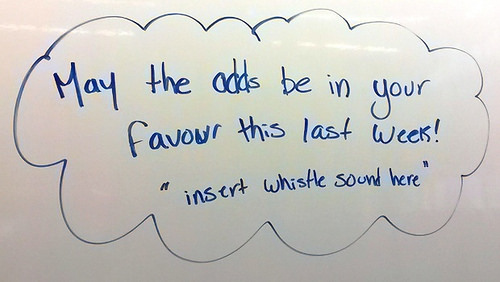 May the odds be in your
favour this last week!
"insert whistle sound here"